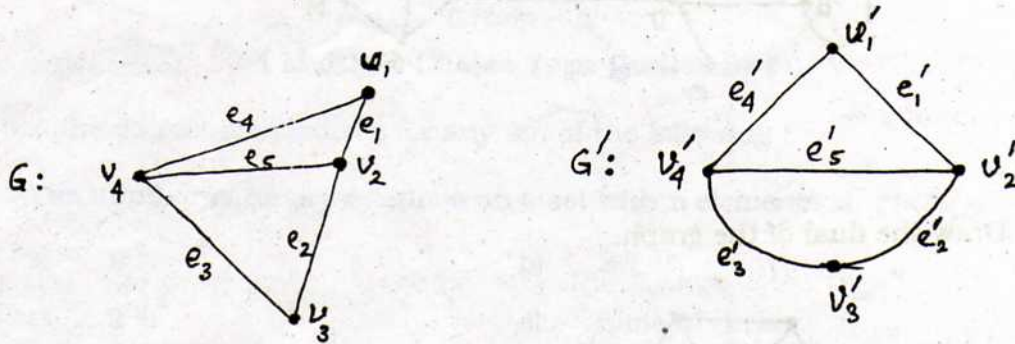 G:
v₁
e₄
e₁
e₅
v₄
v₂
e₃
e₂
v₃
G':
v₁'
e₄'
e₁'
v₄'
e₅'
v₂'
e₃'
e₂'
v₃'